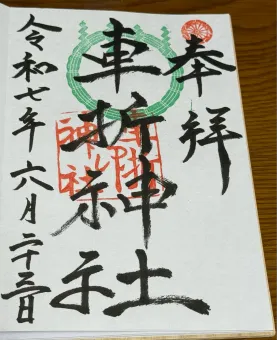 奉拝
車折神社
車折神社
令和七年六月二十三日